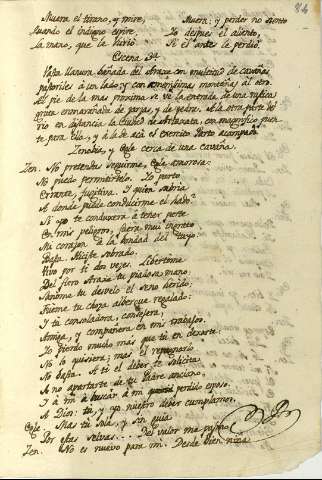 84
Muera el tirano, y mire,
Quando el indigno espire,
la mano, que le hirió
Muera: y perder no siento
Yo despues el aliento,
Si el antes le perdió.
Escena 3ª
Vasta llanura bañada del Araxe con multitud de cavañas
pastoriles à un lado, y con amenisimas montañas al otro
Al pie de la mas proxima se vè la entrada de una rustica
gruta enmarañada de yedra. A la otra parte del
rio en distancia la Ciudad de Artaxata, con magnifico puen
te para ella; y à lo lexos el exercito Parto acampado.
Zenobia, y Egle cerca de una cavaña.
Zen. No pretendas seguirme, Egle amorosa:
No puedo permitirtelo. Yo parto
Errante, fugitiva. I quien sabria
A donde puede conducirme el hado?
Si yo te conduxera à tener parte
En mis peligros, fuera muy ingrato
Mi corazon à la bondad del tuyo.
Basta. Hiciste sobrado.
Vivo por ti dos vezes. Libertóme
Del fiero Araxe tu piadosa mano.
Sanóme tu desvelo el seno herido:
Fueme tu choza albergue regalado:
I tu consoladora, consejera,
Amiga, y compañera en mis trabajos.
Yo pierdo mucho más que tu en dexarte.
No lo quisiera; mas el
No basta. A ti el deber te solicita
A no apartarte de tu Padre anciano,
I à mi a buscar à mi perdido esposo.
A Dios: tu, y yo nuestro deber cumplamos.
Egle. Mas tu sola, y sin guia
Por estas selvas... Del valor me pasmo.
Zen. No es nuevo para mi. Desde bien niña